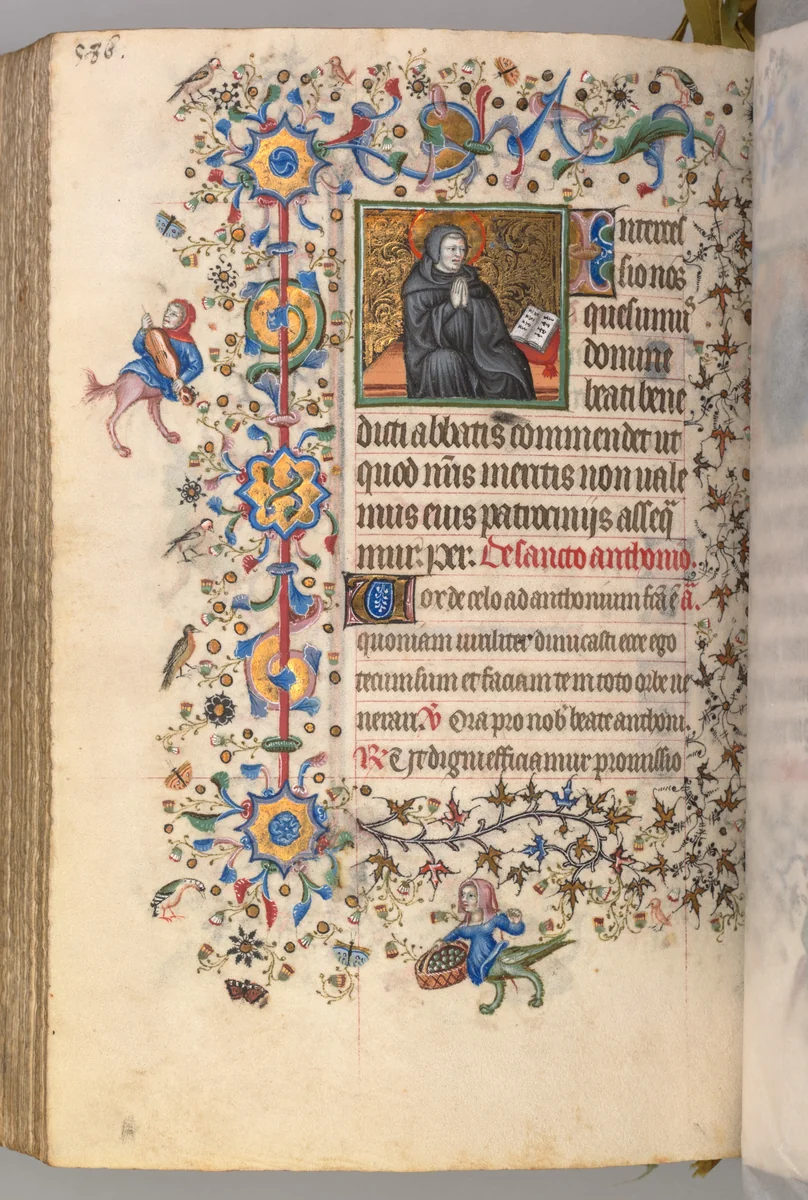 536.
Intercel
sio nos
quesumus
domine
beati bene
dicti abbatis commendet ut
quod nr̄is meritis non uale
mus eius patrocinijs asseq̄
mur. per. De sancto anthonio.
Vox de celo ad anthonium fc̄ā ē ā.
quoniam uiriliter dimicasti ecce ego
tecum sum et faciam te in toto orbe ne
nerari. V̄ Ora pro nob̄ beate anthoni.
R̄ Vt digni efficiamur promissio